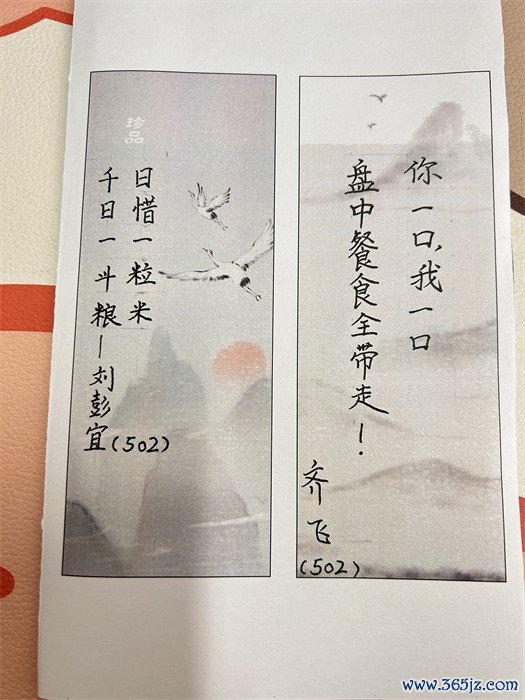 珍品
日惜一粒米
千日一斗粮—刘彭宜(502)
你一口,我一口
盘中餐食全带走！
齐飞
(502)
www.365jz.com